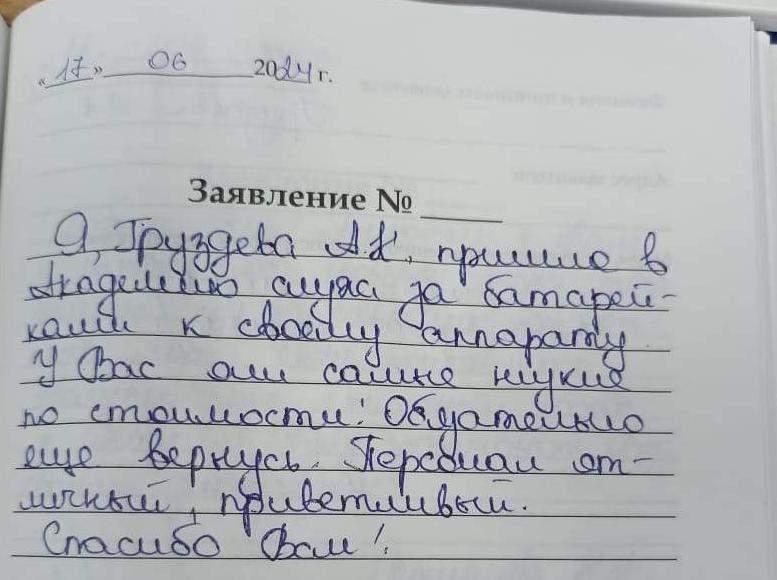 «17» 06 2024 г.
Заявление №
Я, Груздева А.К, пришла в
Академию слуха за батарей-
ками к своему аппарату
У Вас они самые низкие
по стоимости! Обязательно
еще вернусь. Персонал от-
личный, приветливый.
Спасибо Вам!